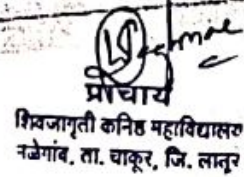 प्राचार्य
शिवजागृती कनिष्ठ महाविद्यालय
नळेगांव, ता. चाकूर, जि. लातूर